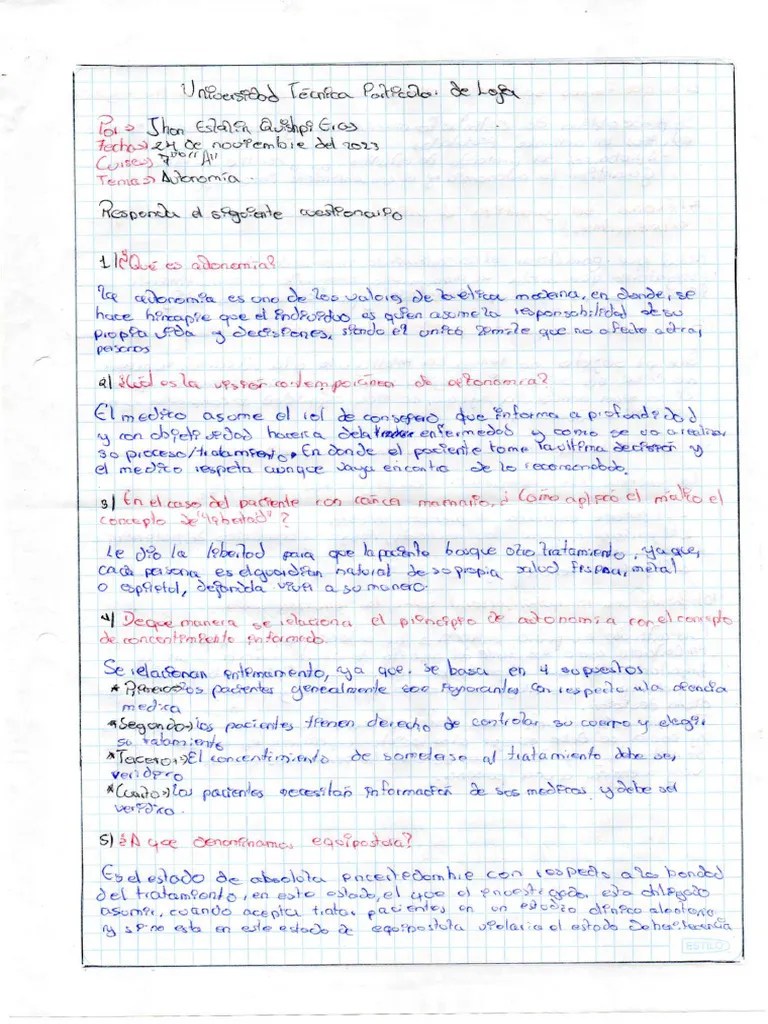 Universidad Técnica Particular de Loja
Por => Jhon Estalin Quishpi Eras
Fecha=> 24 de noviembre del 2023
Curso=> 7mo "A"
Tema=> Autonomía.
Responda el siguiente cuestionario
1) ¿Qué es autonomía?
La autonomía es uno de los valores de la etica moderna, en donde, se
hace hincapie que el individuo es quien asume la responsabilidad de su
propia vida y decisiones, siendo el unico limite que no afecte a otras
personas
2) ¿Cuál es la visión contemporánea de autonomía?
El medico asume el rol de consejero, que informa a profundidad
y con objetividad hacerca de la enfermedad y como se va a realizar
su proceso/tratamiento. En donde el paciente toma la ultima decisión y
el medico respeta aunque vaya encontra de lo recomendado.
3) En el caso del paciente con cáncer mamario, ¿Como aplicó el médico el
concepto de "libertad"?
Le dio la libertad para que la paciente busque otro tratamiento, ya que,
cada persona es el guardian natural de su propia salud física, metal
o espiritol, dejandola vivir a su manera.
4) De que manera se relaciona el principio de autonomía con el concepto
de concentimiento informado.
Se relacionan intimamente, ya que se basa en 4 supuestos
*Primero=>los pacientes generalmente son ignorantes con respecto a la ciencia
medica
*Segundo=>los pacientes tienen derecho de controlar su cuerpo y elegir
su tratamiento
*Tercero=>El concentimiento de someterse al tratamiento debe ser
veridico
*Cuarto=>Los pacientes necesitan información de sus medicos y debe ser
veridica.
5) ¿A que denominamos equipostura?
Es el estado de absoluta incertedumbre con respecto a la bondad
del tratamiento, en este estado, el que el investigador esta obligado
asumir, cuando acepta tratar pacientes en un estudio clínico aleatorio
y si no esta en este estado de equipostura violaria el estado
ESTILO